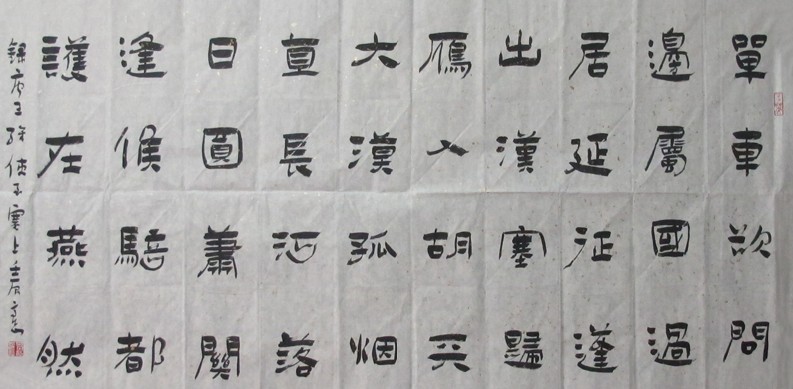 單車欲問
邊屬國過
居延征蓬
出漢塞歸
鴈入胡天
大漠孤烟
直長河落
日圓蕭關
逢候騎都
護在燕然
錄唐王維使至塞上壬辰